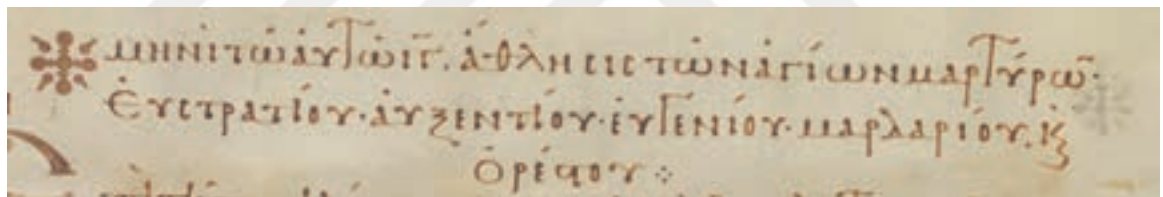 μηνὶ τῶ ἀυτῶ ιγ̅. ἄθλησις τῶν ἁγίων μαρτύρω̅·
Ἐυστρατίου· ἀυξεντίου· ἐυγενίου· μαρδαρίου, κ̣
Ὀρέστου ⁘